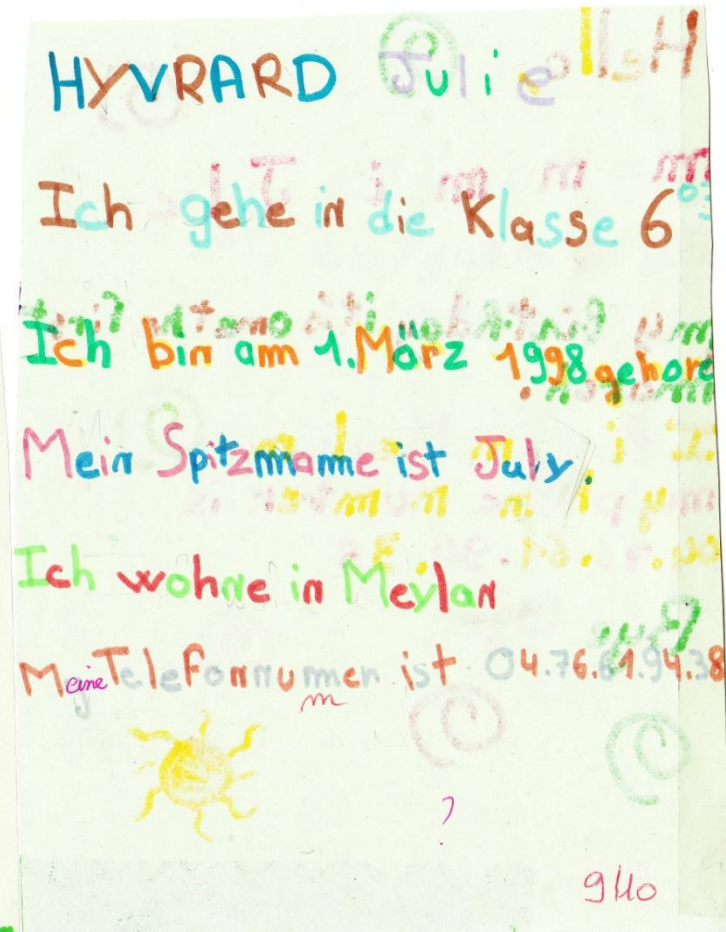 HYVRARD Julie
Ich gehe in die Klasse 6
Ich bin am 1. März 1998 gehore
Mein Spitzmame ist July.
Ich wohne in Meylan
Meine Telefonnumen ist 04.76.61.94.38
m
?
9/10